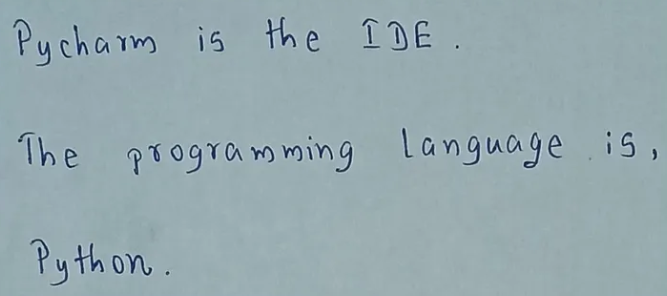 Pycharm is the IDE.
The programming language is,
Python.